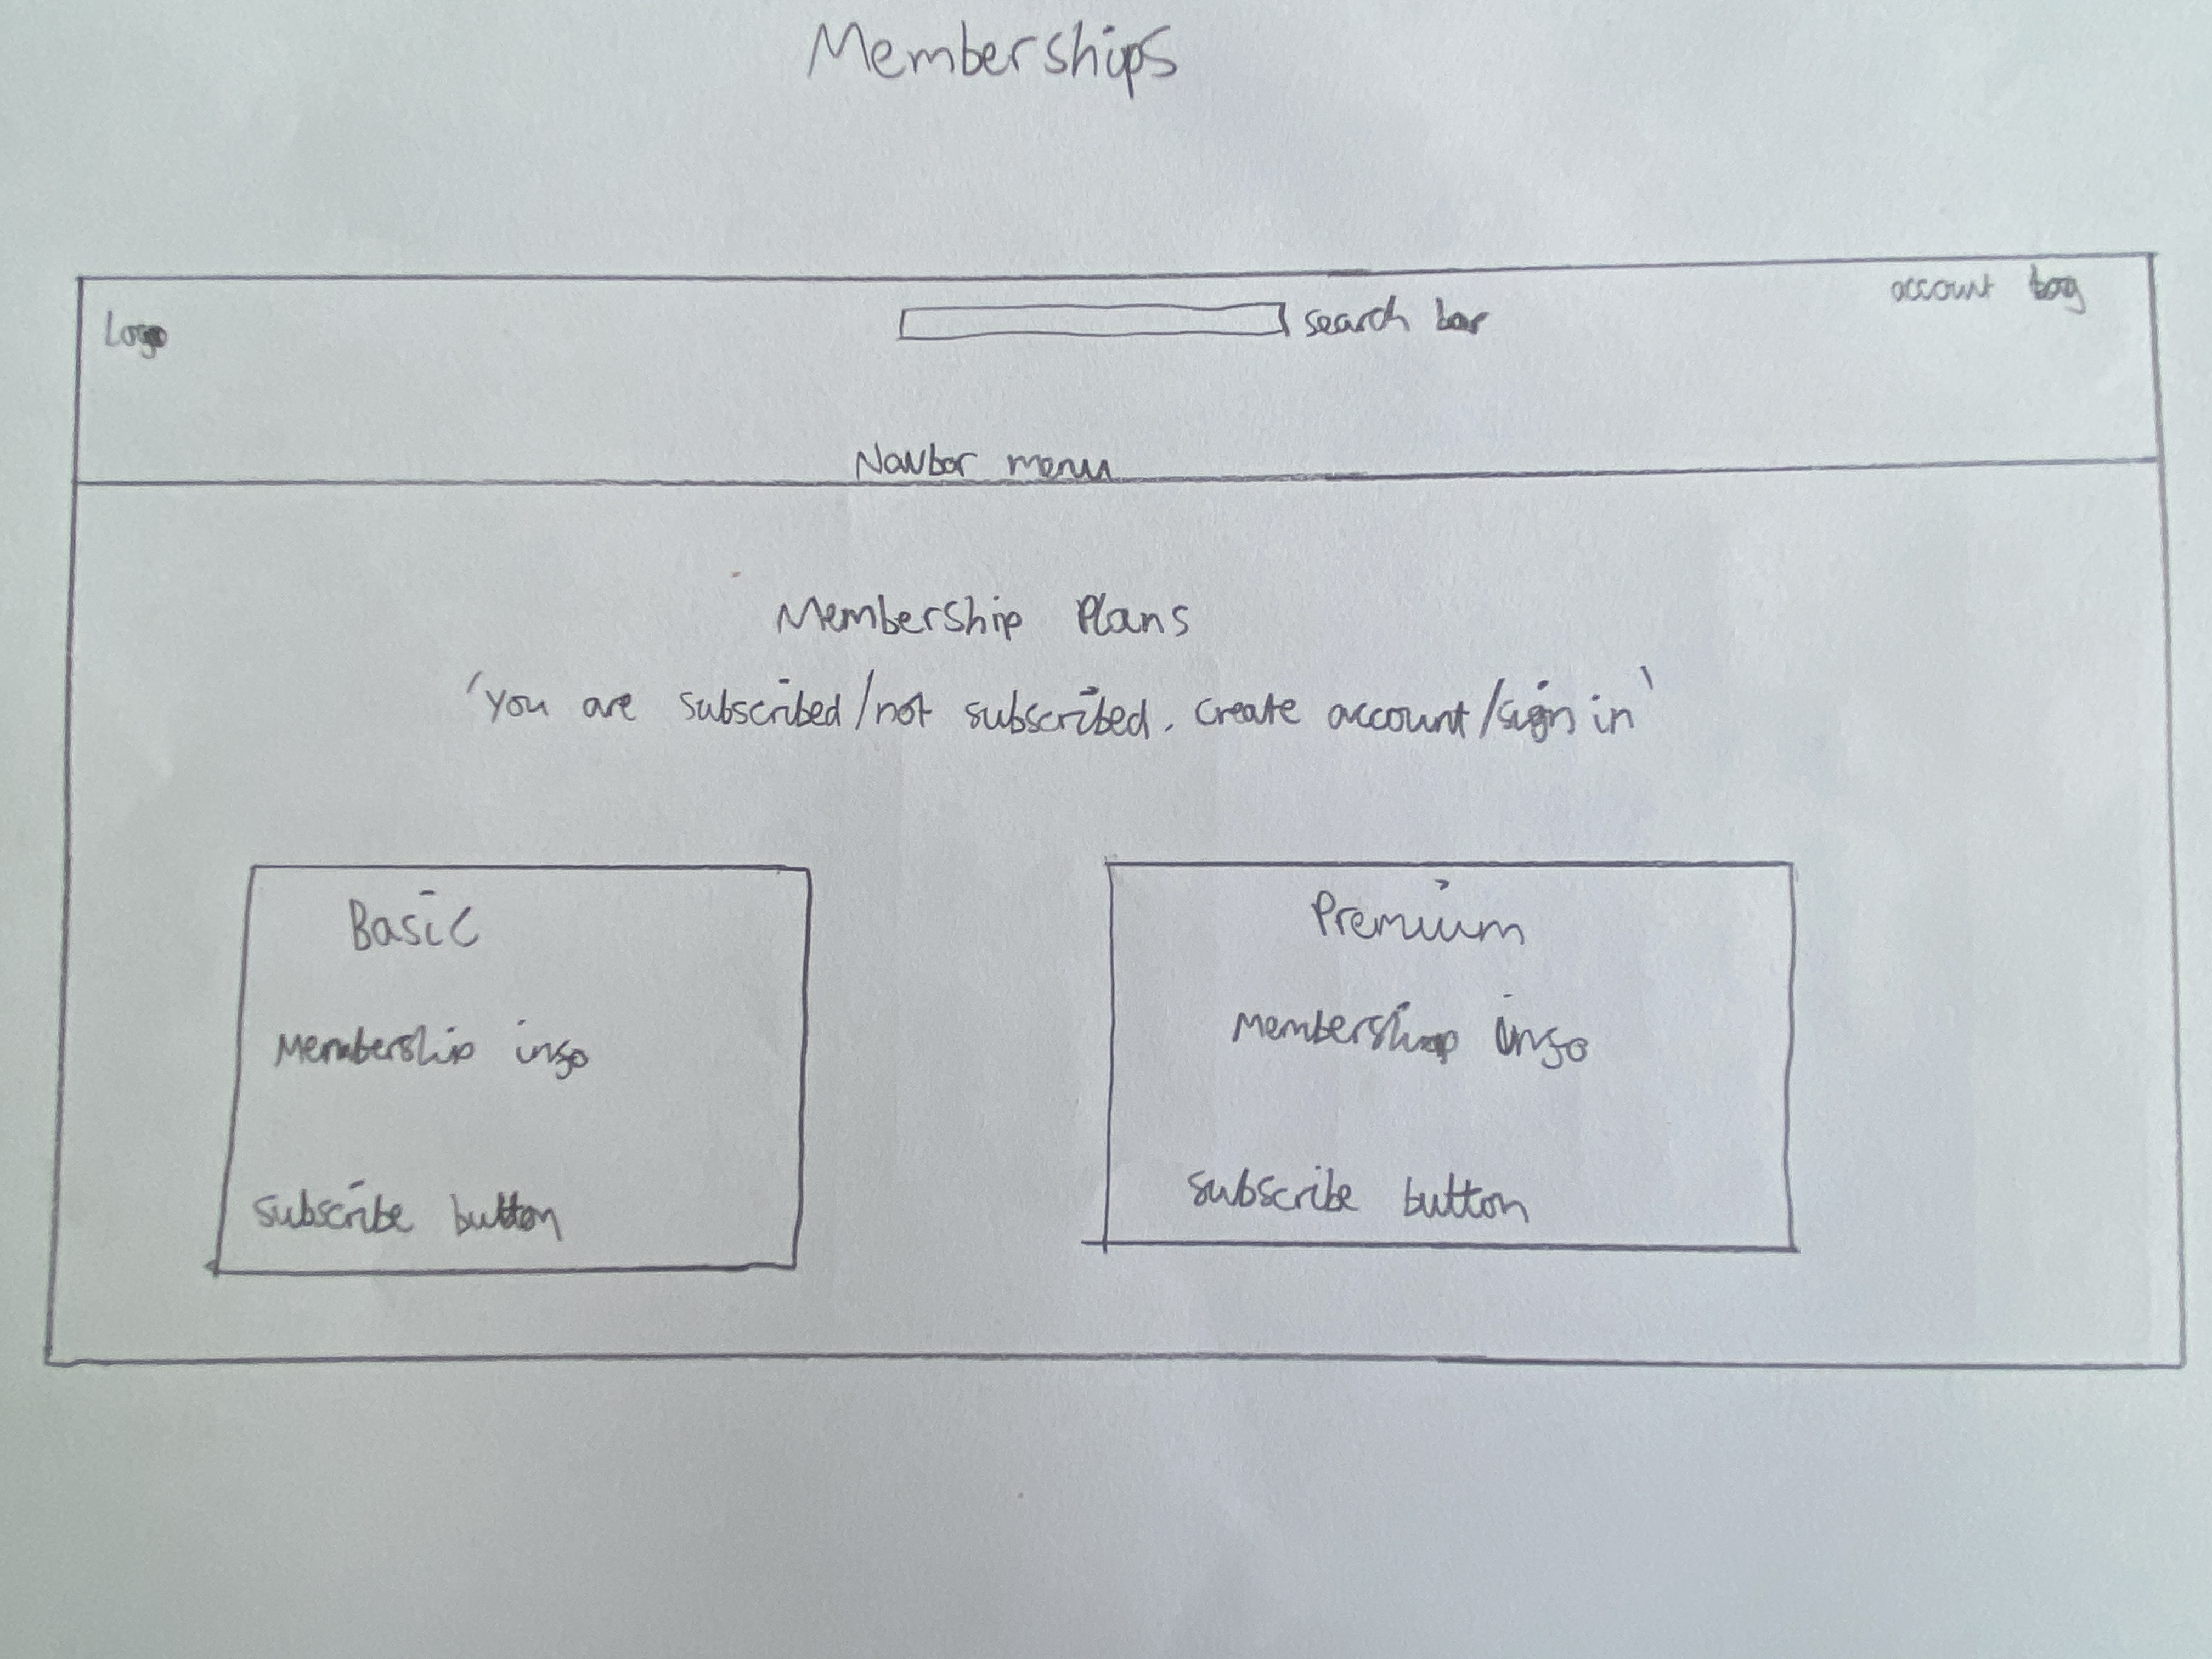 Memberships
Logo
search bar
account bag
Navbar menu
Membership Plans
'You are subscribed/not subscribed, create account/sign in'
Basic
Membership info
subscribe button
Premium
Membership info
subscribe button